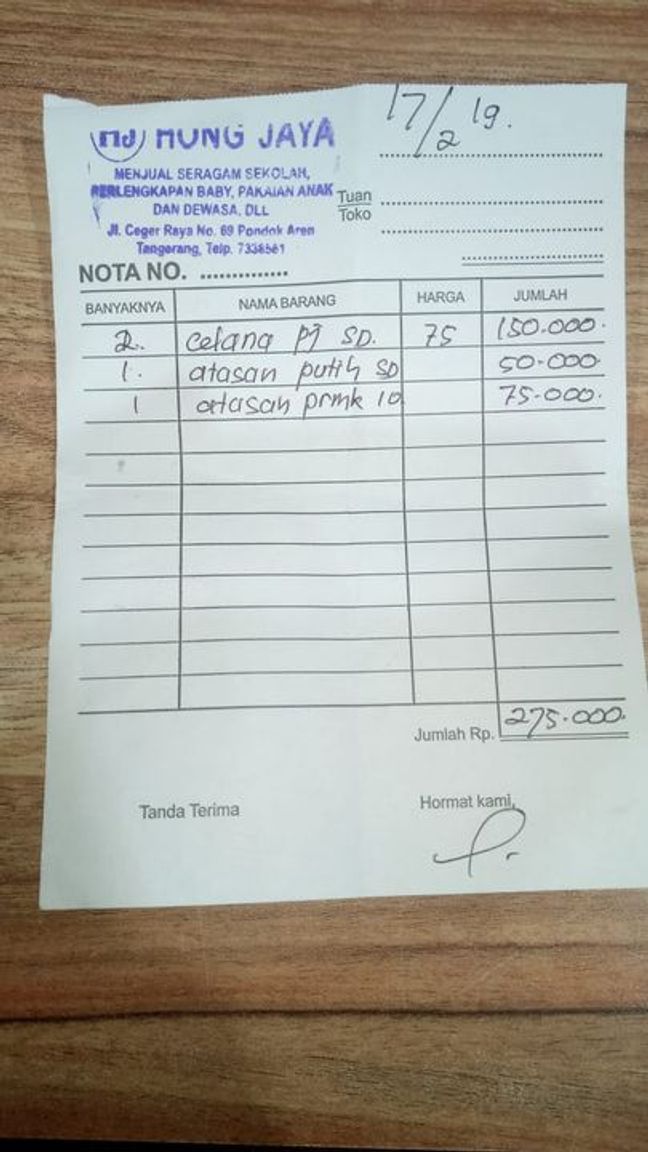 MJ MUNG JAYA
MENJUAL SERAGAM SEKOLAH,
PERLENGKAPAN BABY, PAKAIAN ANAK
DAN DEWASA, DLL
Jl. Ceger Raya No. 69 Pondok Aren
Tangerang, Telp. 7338561
17/2 19.
Tuan
Toko
NOTA NO. ..............
BANYAKNYA NAMA BARANG HARGA JUMLAH
2. celana pj SD. 75 150.000.
1. atasan putih SD 50.000.
1 atasan prmk 10 75.000.
Jumlah Rp. 275.000.
Tanda Terima Hormat kami,